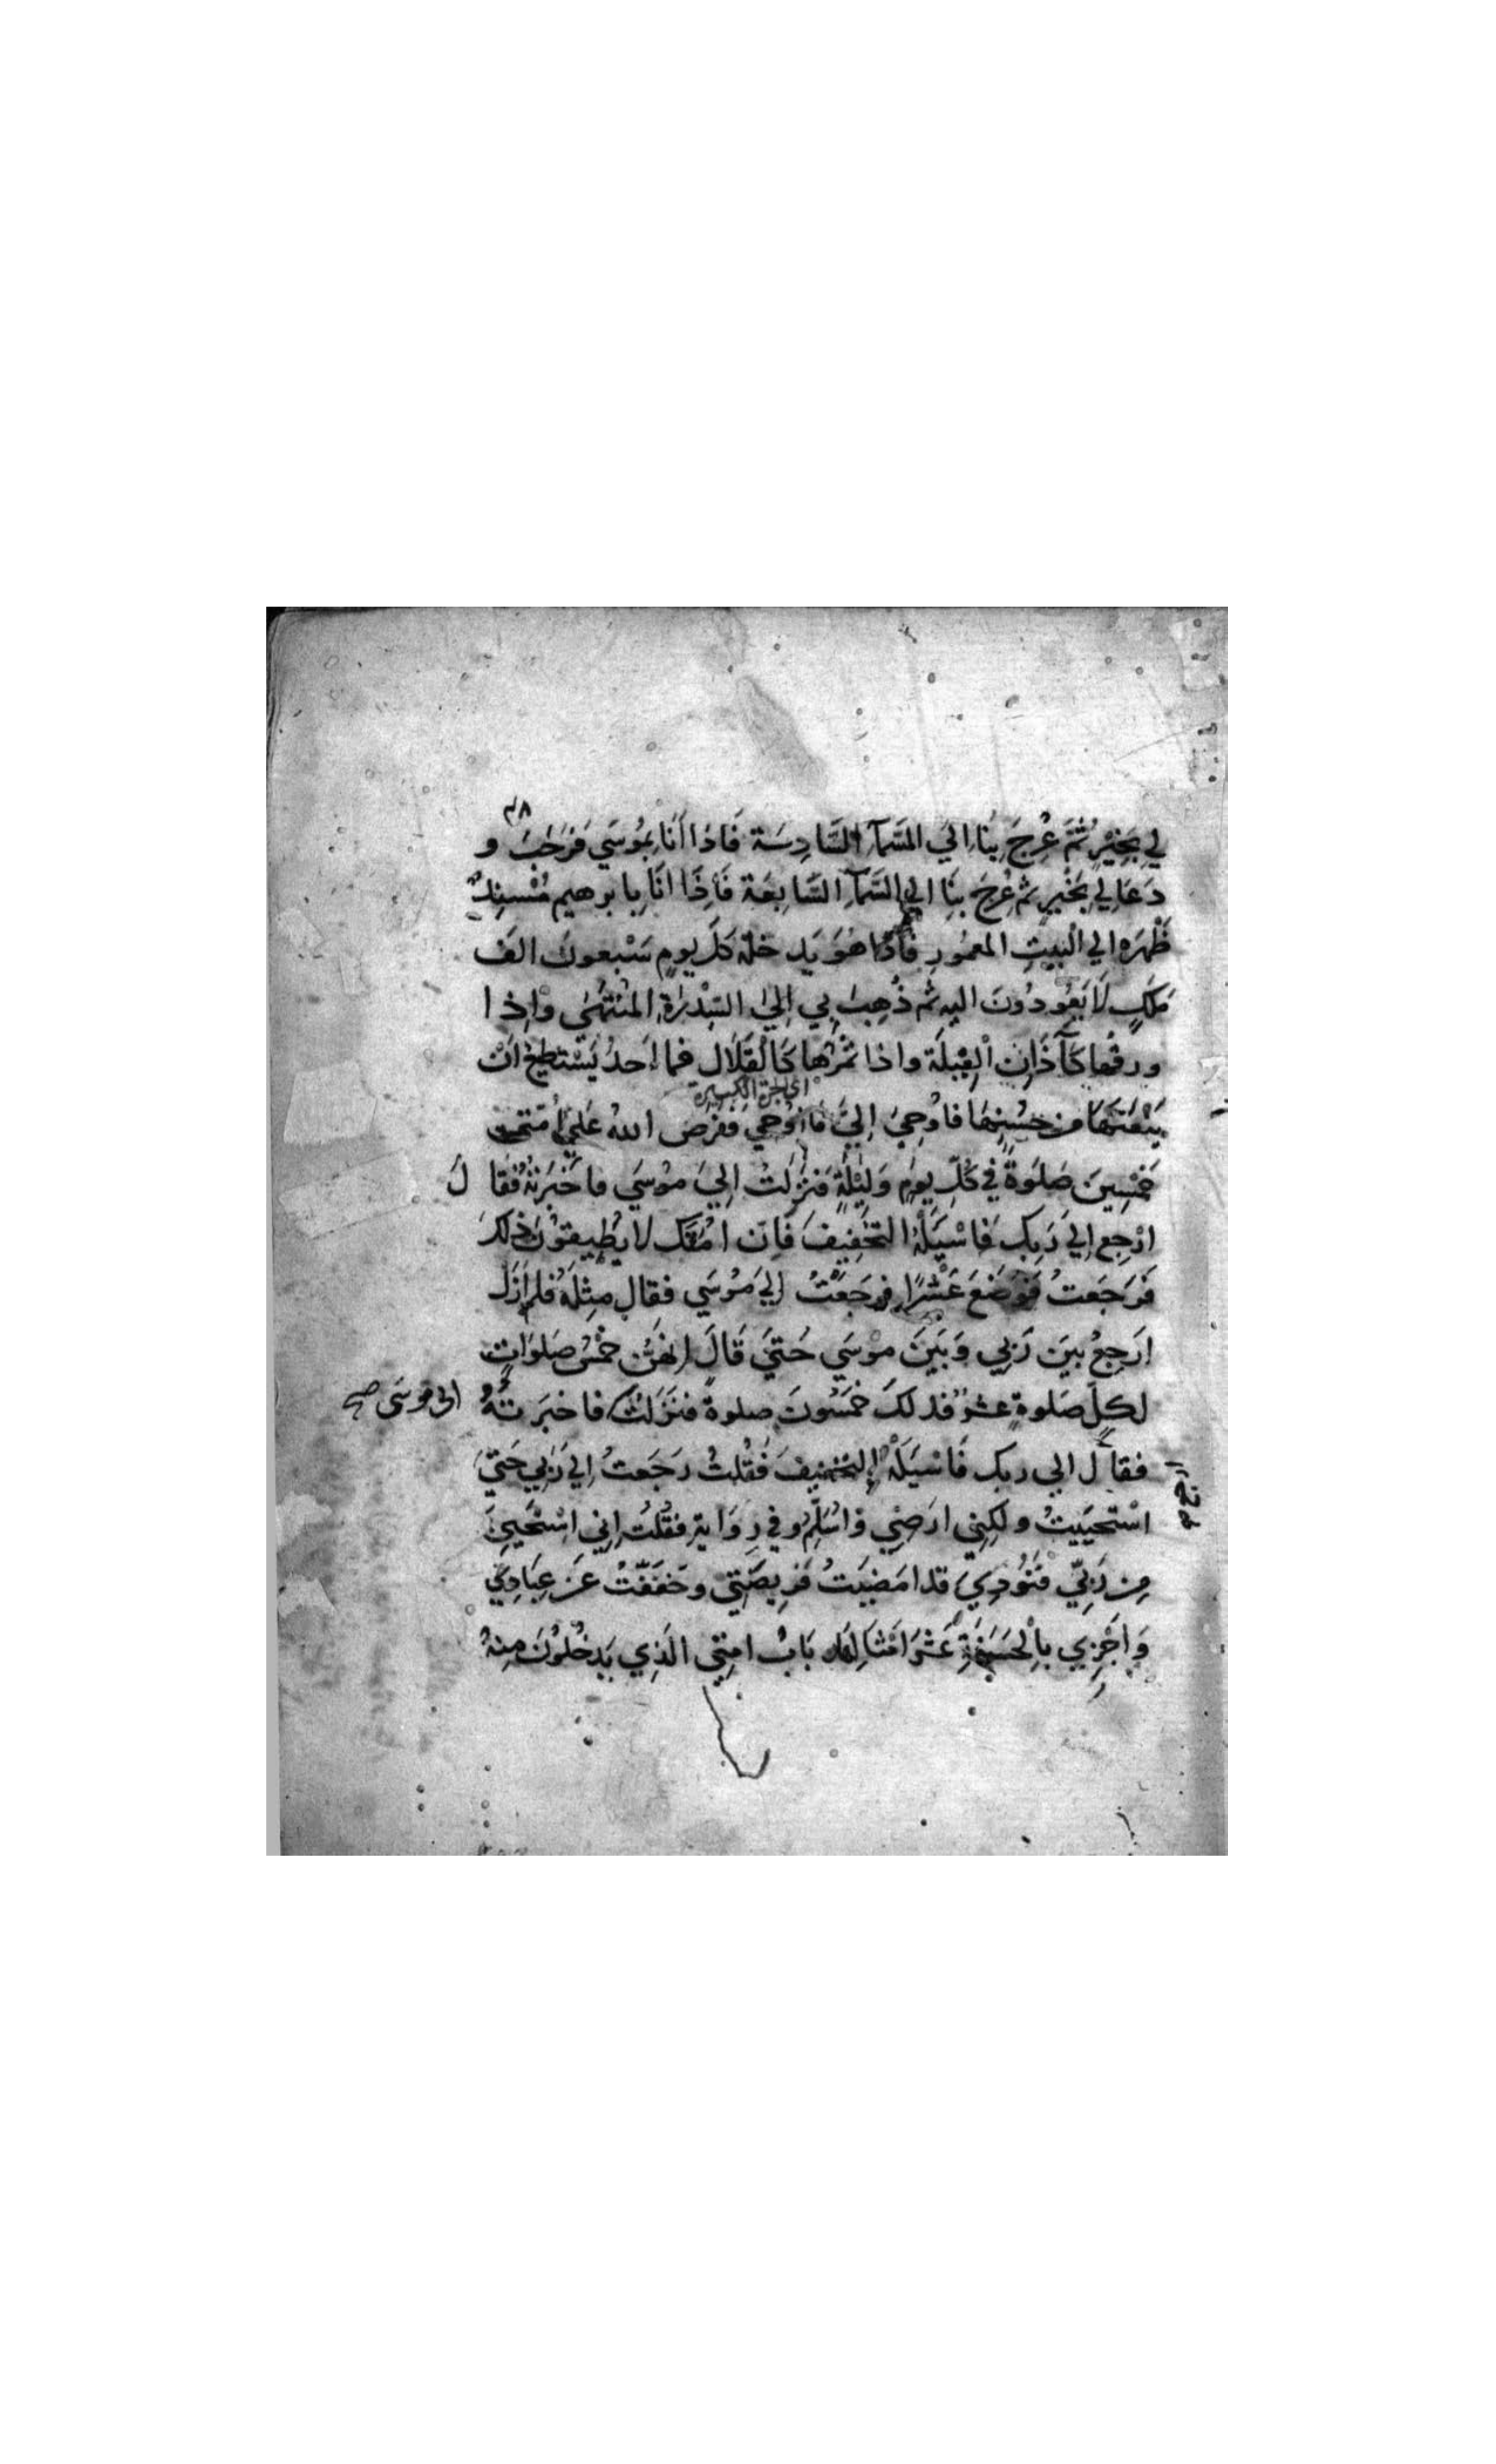 ٤٨
لِي بِخَيْرٍ ثُمَّ عُرِجَ بِنَا اِلَي السَّمآءِ السَّادِسَة فَاذا أَنَا بِمُوسَي فرَحَّبَ و
دَعَا لِي بِخَيْرٍ ثم عُرِجَ بِنَا الي السَّمآءِ السَّابِعَة فَاِذَا انَا بِابرهيم مُسْنِدٌ
ظَهْرَه الي الْبيتِ المعمُورِ فَاذا هُوَ يَدخلهُ كلَّ يومٍ سَبْعونَ الفَ
مَلَكٍ لَا يَعُودُونَ اليه ثم ذُهِبَ بِي اِلَي السِّدْرَةِ المُنْتَهَى وَاِذا
ورقُها كَآذَانِ الْفِيلَة واذا ثَمَرُهَا كَالْقِلَال فما اَحدٌ يَسْتطيعُ اَنْ
اي الجرة الكبيرة
يَنْعَتَهَا من حُسْنِهَا فاوحِيَ اِلَيَّ مَا اُوحِي ففَرَضَ اللهُ عَلَي اُمّتي
خَمْسِينَ صَلَوةً في كُلّ يومٍ وَلَيْلَةٍ فنزَلتُ اِلَيَ مُوسَي فاخْبَرتُهُ فَقَا لَ
ارْجِع اِلي رَبِّكَ فَاسْيَلْهُ التخفِيفَ فَاِن امّتَك لا يُطِيقُونَ ذلكَ
فَرَجَعتُ فَوَضَعَ عَشْرًا فرجَعْتُ اِلَي مُوسَي فقال مِثلَهُ فلم اَزَلْ
ارجِعُ بينَ رَبِّي وَبَينَ موسَي حَتيَ قَالَ انهُنّ خَمْسُ صَلوَاتٍ
لكلِّ صَلوةٍ عشرٌ فذلكَ خَمسُونَ صلوةً فنَزَلتُ فاخبَرتُهُ
الى موسَى صح
فقال الي ربك فَاسْيَلْهُ التخفيفَ فَقُلتُ رَجَعتُ اِلي رَبِّي حَتّيَ
اسْتحيَيتُ ولكِنِي ارَضِي وَاُسَلِّمُ وفي رِوَايةٍ فقُلتُ اِنِي اسْتحْيِيَ
مِن رَبِّيّ فَنُودِيَ قد امَضَيتُ فرِيضَتي وخَفّفْتُ عَن عِبَادِيَ
وَاَجْزِي بِالْحَسَنَةِ عَشْرَ امْثَالِهَا بَابُ امتِي الّذِي يَدخُلُونَ مِنهُ